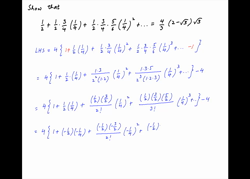 Show that
1/2 + 1/2 · 3/4 (1/4) + 1/2 · 3/4 · 5/6 (1/4)² + ... = 4/3 (2-√3)√3
LHS = 4{1+ 1/2 (1/4) + 1/2 · 3/4 (1/4)² + 1/2 · 3/4 · 5/6 (1/4)³ + ... -1}
= 4{1 + 1/2 (1/4) + 1·3/2²(1·2) (1/4)² + 1·3·5/2³(1·2·3) (1/4)³ + ...} -4
= 4{1 + 1/2 (1/4) + (1/2)(3/2)/2! (1/4)² + (1/2)(3/2)(5/2)/3! (1/4)³ + ...} -4
= 4{1 + (-1/2)(-1/4) + (-1/2)(-3/2)/2! (-1/4)² + (-1/2)